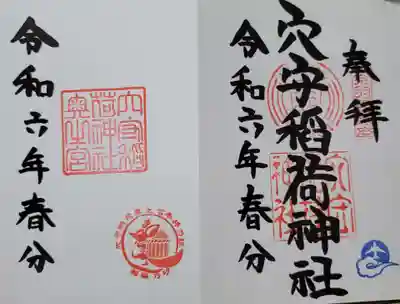 奉拝
穴守稲荷神社
令和六年春分
穴守稲
荷神社
奥之宮
令和六年春分